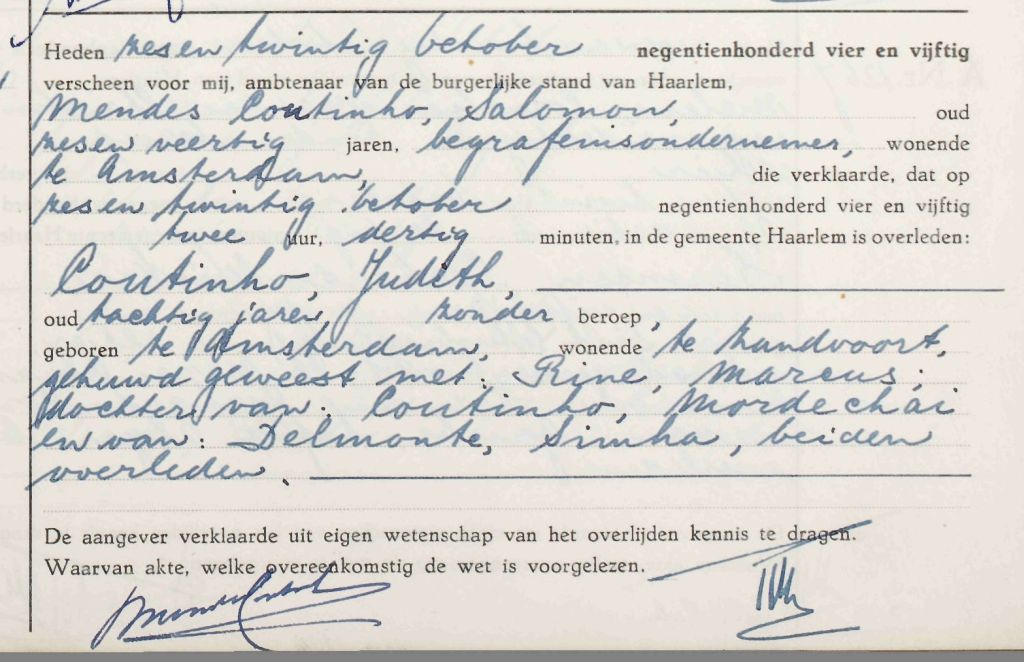 Heden zes en twintig October negentienhonderd vier en vijftig
verscheen voor mij, ambtenaar van de burgerlijke stand van Haarlem,
Mendes Coutinho, Salomon, oud
zes en veertig jaren, begrafenisondernemer, wonende
te Amsterdam, die verklaarde, dat op
zes en twintig October negentienhonderd vier en vijftig
twee uur, dertig minuten, in de gemeente Haarlem is overleden:
Coutinho, Judith,
oud tachtig jaren, zonder beroep,
geboren te Amsterdam, wonende te Zandvoort,
gehuwd geweest met: Rine, Marcus;
dochter van: Coutinho, Mordechai
en van: Delmonte, Simha, beiden
overleden.
De aangever verklaarde uit eigen wetenschap van het overlijden kennis te dragen.
Waarvan akte, welke overeenkomstig de wet is voorgelezen.